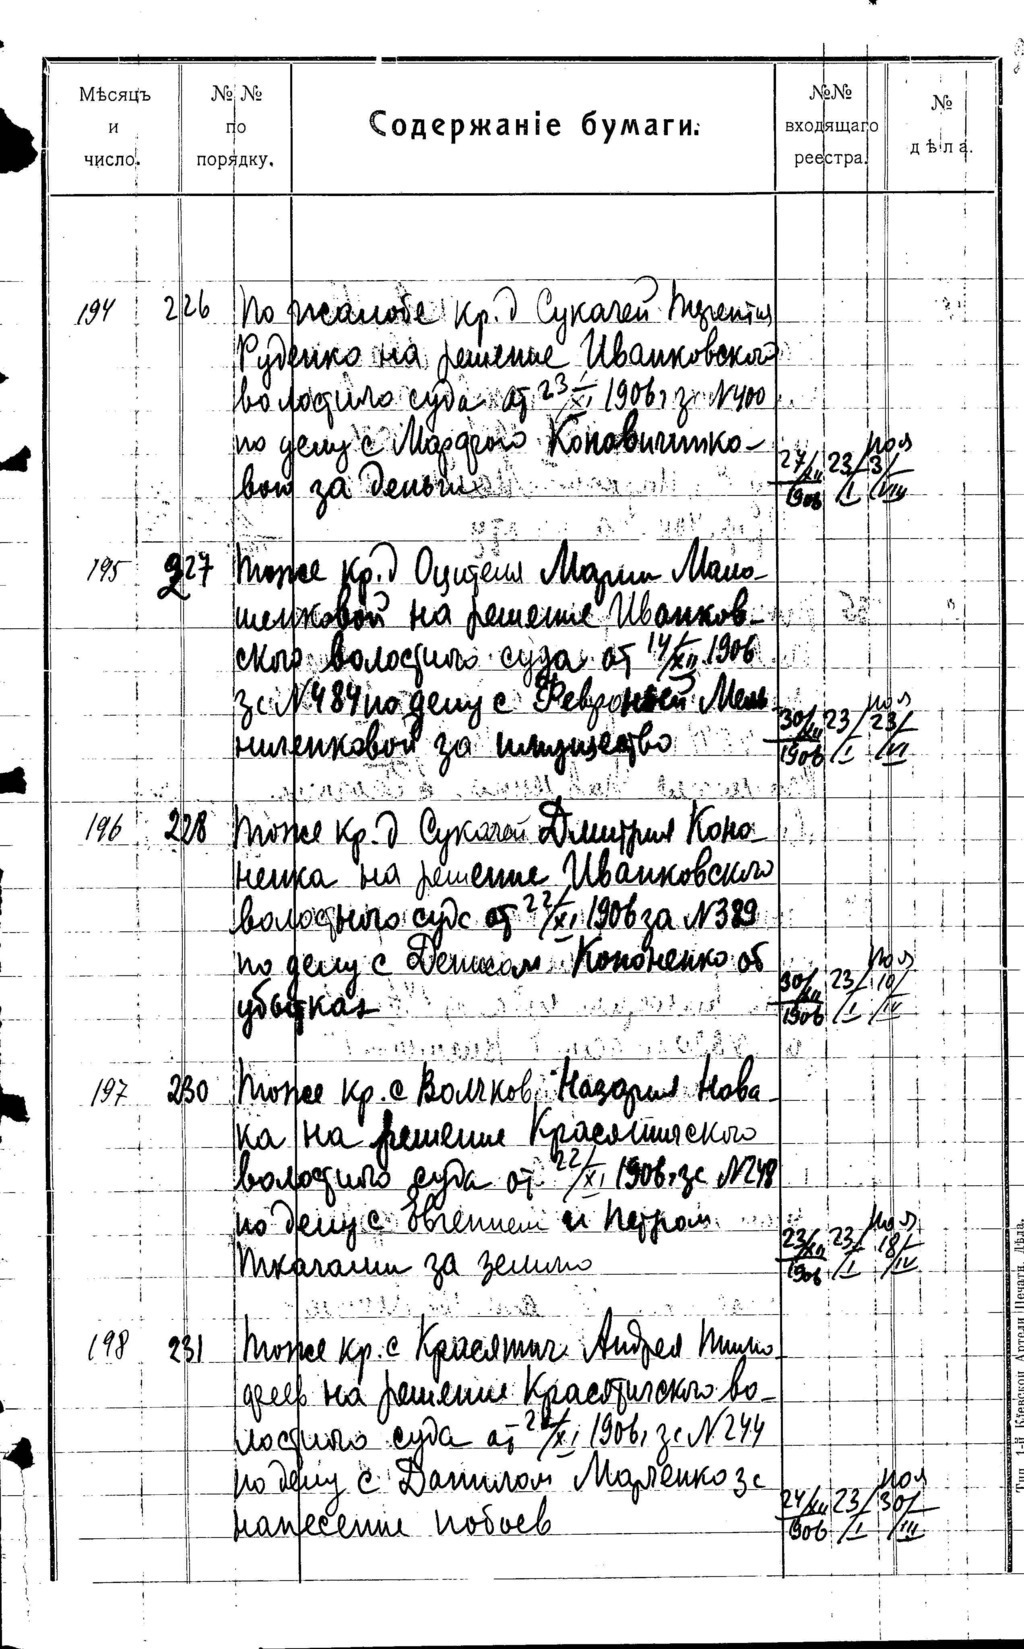 Мѣсяцъ и число.
№№ по порядку.
Содержаніе бумаги.
№№ входящаго реестра.
№ дѣла.
194 226 По жалобе кр. д Сукачей Терентия
Руденко на решение Иванковского
волостного суда от 23/XI 1906 г за №400
по делу с
вою за деньги
27/XII 1906 23/I пол 3/VII
195 227 Тоже кр. д Оцителя Марии Мало-
шенковой на решение Иванков-
ского волостного суда от 14/XII 1906
за №484 по делу с Февронией Мель-
ниленковой за имущество
30/XII 1906 23/I пол 23/VI
196 228 Тоже кр. д Сукачей Дмитрия Коно-
ненка на решение Иванковского
волостного суда от 22/XI 1906 за №389
по делу с Денисом Кононенко об
убытках
30/XII 1906 23/I пол 10/IV
197 230 Тоже кр. с Волчков Назария Нова-
ка на решение Красятичского
волостного суда от 22/XI 1906 г за №248
по делу с Евгением и Петром
Ткачами за землю
23/XII 1906 23/I пол 18/IV
198 231 Тоже кр. с Красятич Андрея Тимо-
феев на решение Красятичского во-
лостного суда от 22/XI 1906 г за №244
по делу с Данилом Марченко за
нанесение побоев
24/XII 1906 23/I пол 30/III
Тип. 1-й Кіевской Артели Печатн. Дѣла.